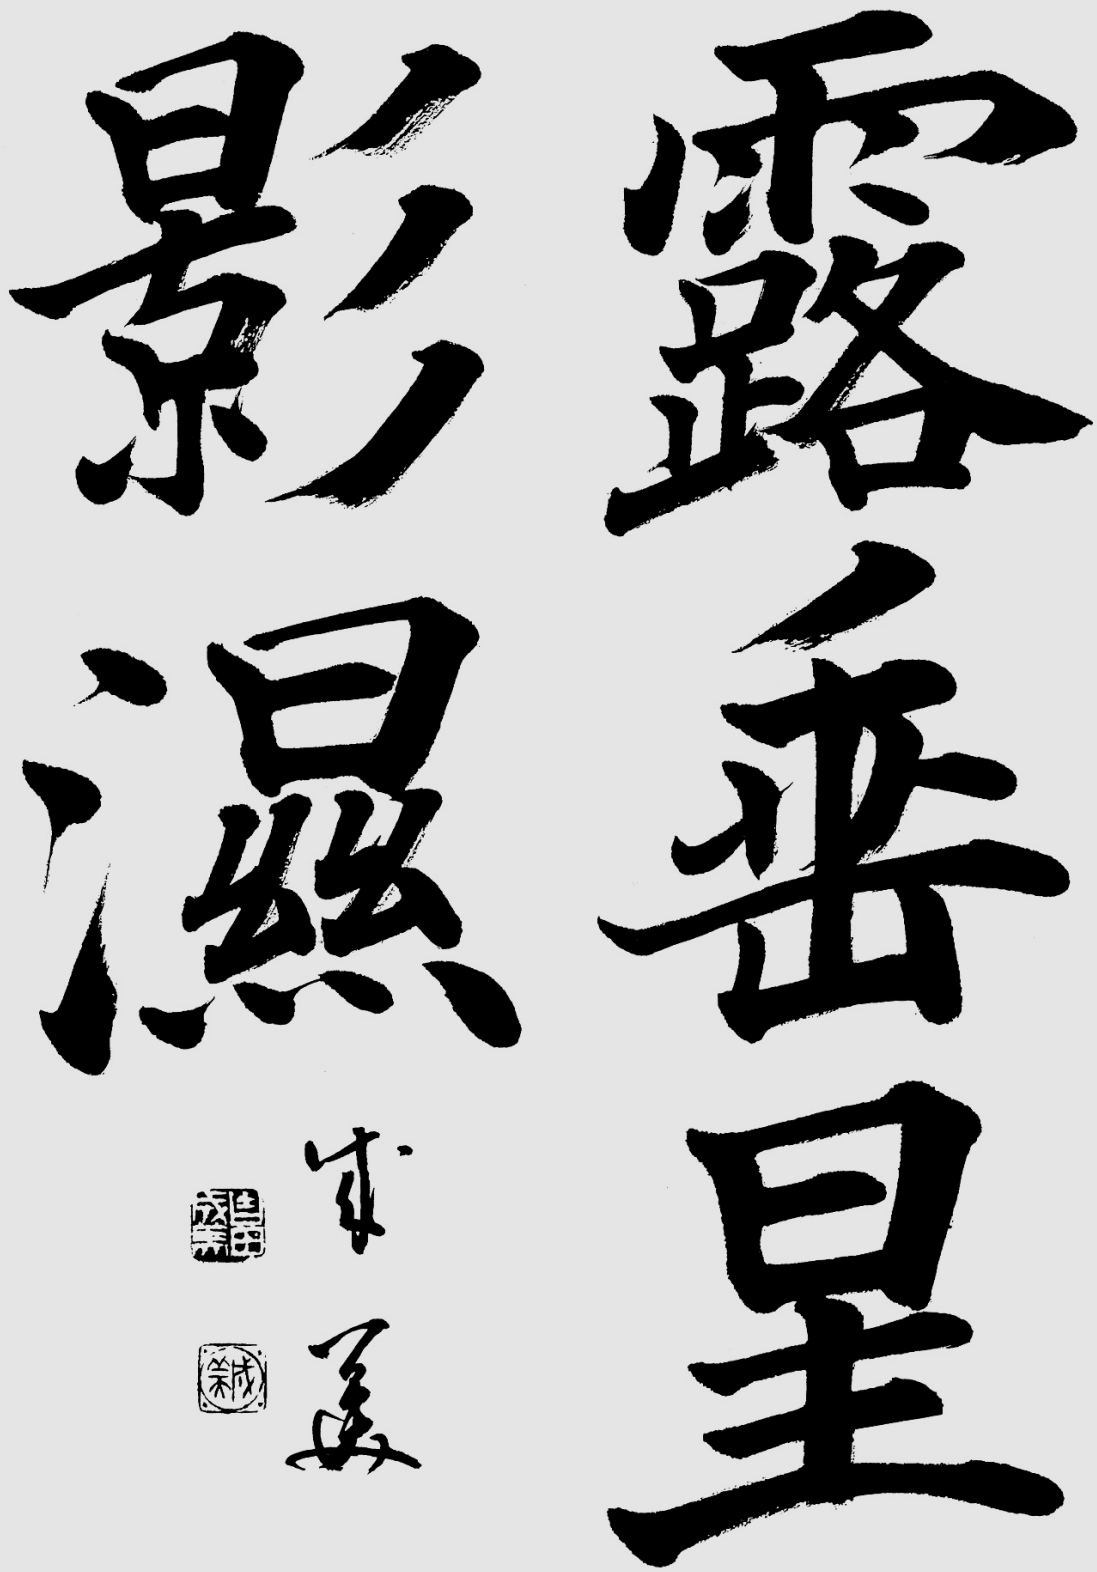 露垂星
影濕
成美